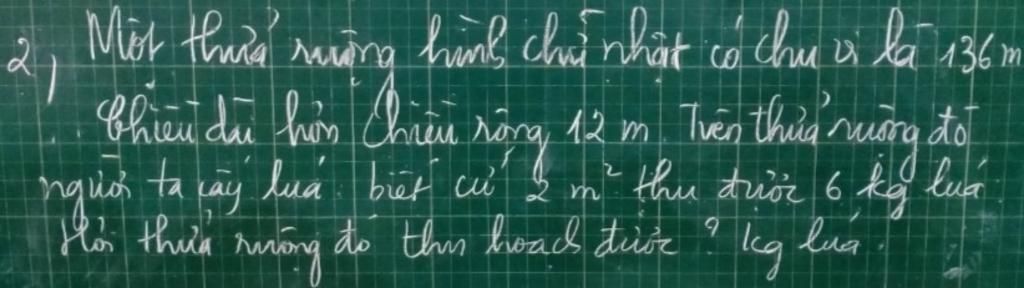 2, Một thửa ruộng hình chữ nhật có chu vi là 136 m
Chiều dài hơn chiều rộng 12 m. Trên thửa ruộng đó
người ta cấy lúa. biết cứ 2 m² thu được 6 kg lúa
Hỏi thửa ruộng đó thu hoạch được ? kg lúa.